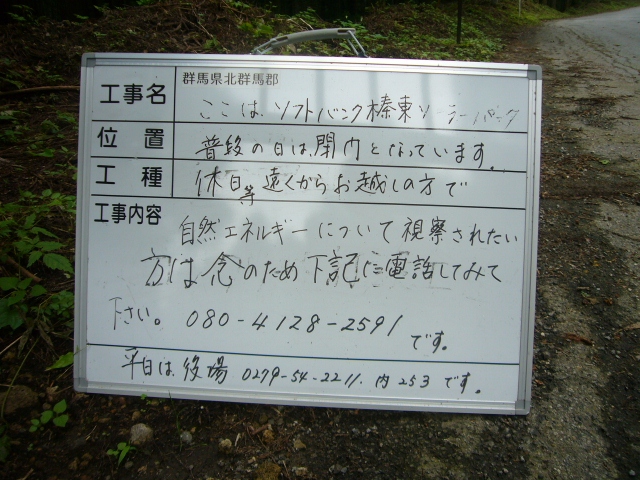 群馬県北群馬郡
工事名 ここは ソフトバンク榛東ソーラーパーク
位置 普段の日は、閉門となっています。
工種 休日等遠くからお越しの方で
工事内容
自然エネルギーについて視察されたい
方は念のため下記に電話してみて
下さい。080-4128-2591 です。
平日は、役場 0279-54-2211. 内253 です。